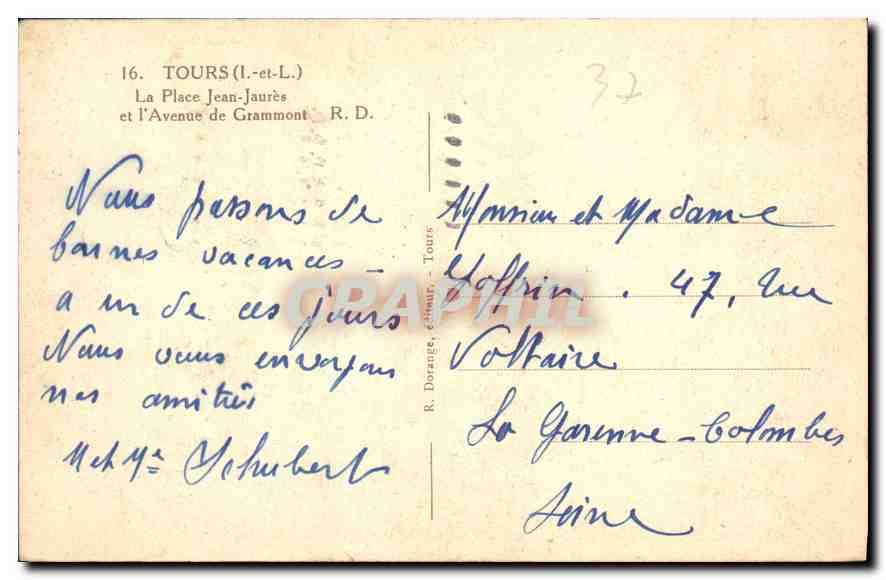 16. TOURS (I.-et-L.)
La Place Jean-Jaurès
et l'Avenue de Grammont R. D.
37
Nous passons de
bonnes vacances -
a un de ces jours
Nous vous envoyons
nos amitiés
M et Me Schubert
R. Dorange, éditeur, - Tours
Monsieur et Madame
47, rue
Voltaire
La Garenne-Colombes
Seine
CPAPHIL